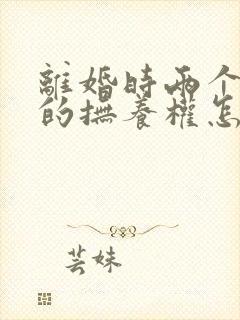 離婚時兩个
的撫養權怎
芸妹